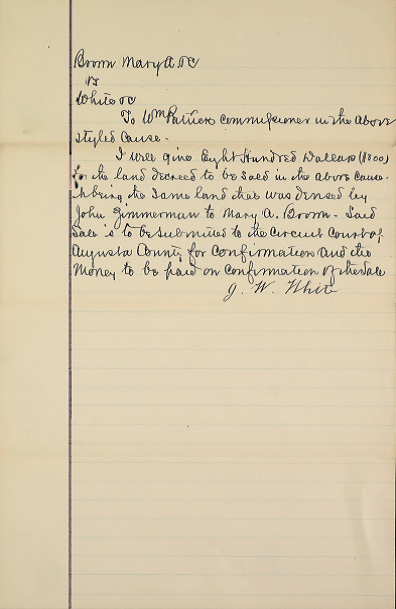 Broom Mary A &c
vs
White &c
To Wm Patrick Commissioner in the above
styled Cause.
I will give Eight Hundred Dollars (800)
for the land decreed to be sold in the above Cause
it being the same land that was devised by
John Zimmerman to Mary A. Broom. Said
Sale is to be submitted to the Circuit Court of
Augusta County for Confirmation and the
Money to be paid on confirmation of the Sale
J. W. White